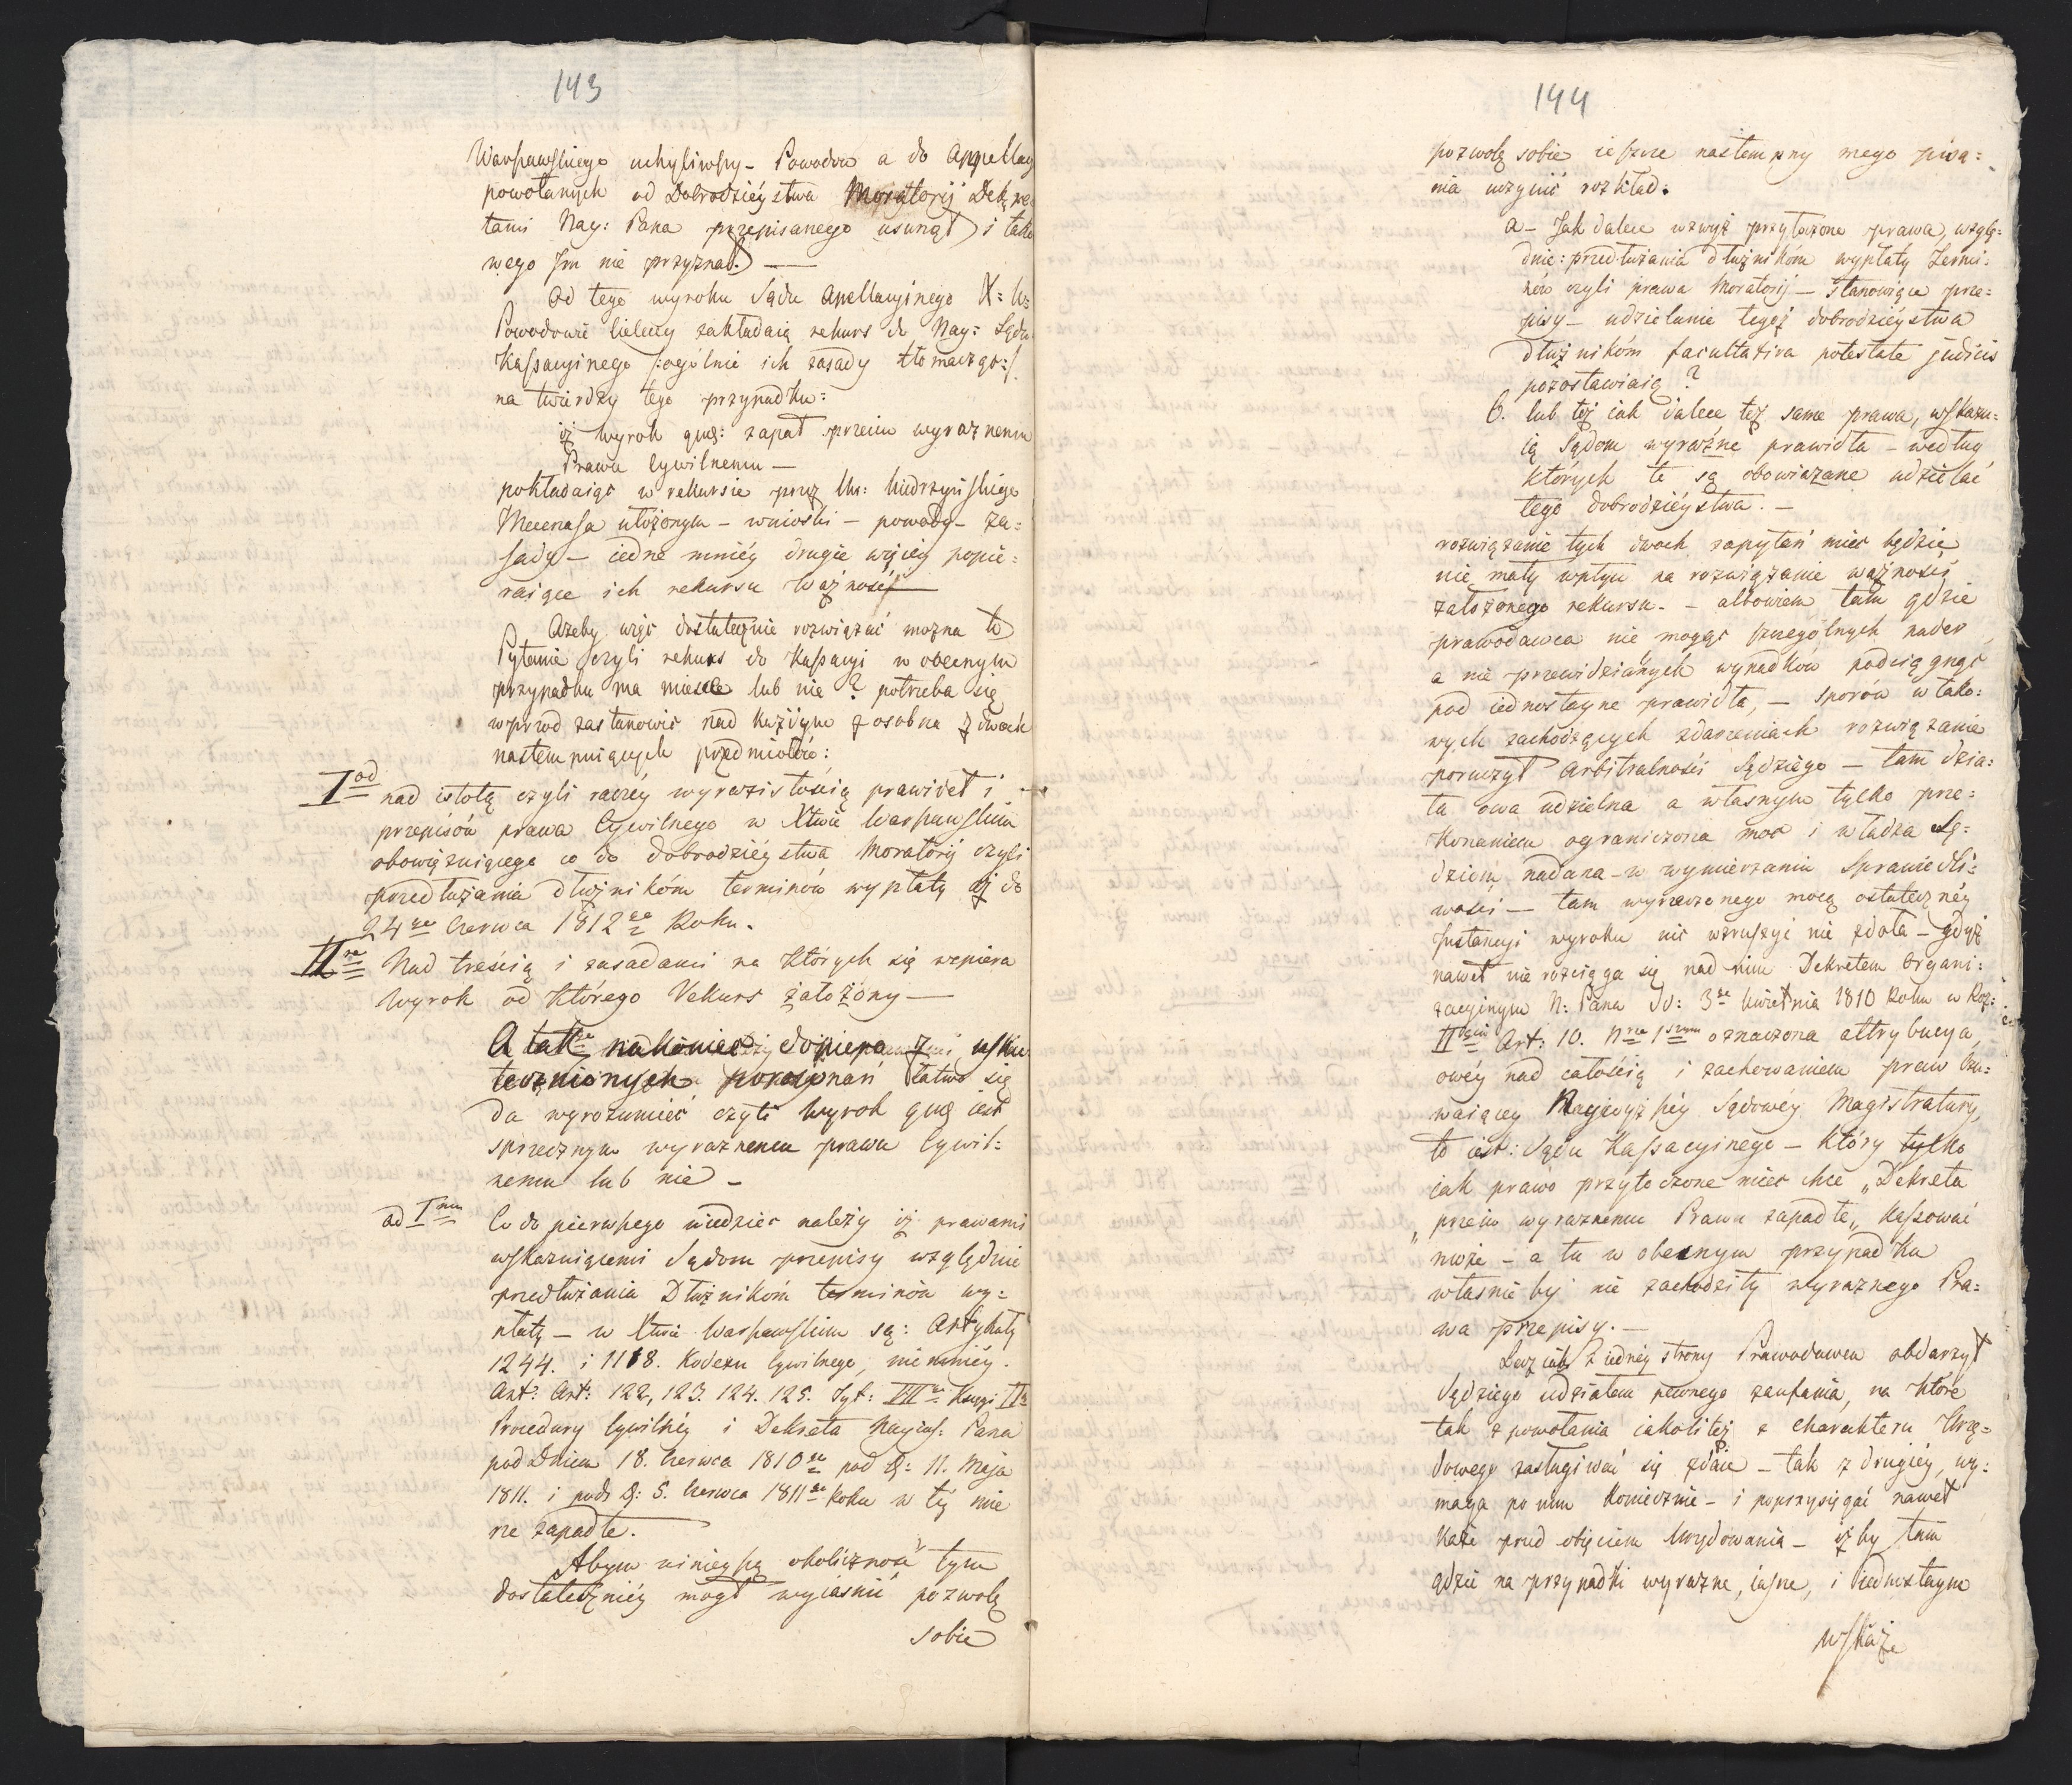 143
Warszawskiego uchyliwszy - Powodów a do Appellacy
powołanych od Dobrodzieystwa Moratorij Dekre
tami Nay: Pana przepisanego usunął i tako
wego Im nie przyznał. —
Od tego wyroku Sądu Apellacyinego X: W:
Powodowie Cieleccy zakładaią rekurs do Nay: Sądu
Kassacyinego /:ogólnie ich zasady tłomacząc:/
na twierdzy tego przypadku:
iż wyrok quæ: zapał przeciw wyraznemu
Prawu Cywilnemu —
pokładaiąc w rekursie przez Ur:
Mecenasa ułożonym - wnioski - powody - za=
sady - iedne mniéy drugie więcéy popie=
raiące ich rekursu Ważność —
Ażeby więc dostatecznie rozwiązać można to
Pytanie czyli rekurs do Kassacyi w obecnym
przypadku ma miesce lub nie? potrzeba się
wprzod zastanowić nad każdym z osobna z dwoch
nastempuiących przedmiotów:
I od nad istotą czyli raczéy wyrazistością prawideł i
przepisów prawa Cywilnego w Xtwie Warszawskim
obowiązuiącego co do dobrodzieystwa Moratorij czyli
przedłużania dłużnikóm terminów wypłaty aż do
24go Czerwca 1812go Roku.
II re Nad treścią i zasadami na których się wspiera
Wyrok od którego Rekurs założony —
A tak nakoniec dopiero z usku
tecznionych porównań łatwo się
da wyrozumieć czyli wyrok quæ iest
sprzecznym wyraznemu prawu Cywil=
nemu lub nie -
ad Imum Co do pierwszego wiedzieć należy iż prawami
wskazuiącemi Sądom przepisy względnie
przedłużania Dłużnikóm terminów wy=
płaty - w Xtwie Warszawskim są: Artykuły
1244. i 1188. Kodexu Cywilnego, niemniéy.
Art: Art: 122, 123. 124. 125. Tyt: VII Xięgi II
Procedury Cywilnéy i Dekreta Nayias: Pana
pod Dniem 18. Czerwca 1810go pod D: 11. Maja
1811. i pod D: 5. Czerwca 1811go Roku w téy mie
rze zapadłe.
Abym ninieyszą okoliczność tym
dostateczniéy mogł wyiasnić pozwolę
sobie
144
pozwolę sobie ieszcze nastempny mego pisa=
nia uczynić rozkład.
a - Jak dalece wzwyż przytoczone prawa, wzglę=
dnie: przedłużania dłużnikóm wypłaty Termi=
nów czyli prawa Moratorij - stanowiące prze=
pisy - udzielanie tegoż dobrodzieystwa
dłużnikóm facultativa potestate judicis
pozostawiaią?
b. lub też iak dalece też same prawa, wskazu=
ią Sądom wyraźne prawidła - według
których te są obowiązane udzielać
tego dobrodzieystwa. -
rozwiązanie tych dwoch zapytań mieć będzie
nie mały wpływ na rozwiązanie ważności
założonego rekursu. - albowiem tam gdzie
prawodawca nie mogąc szczególnych nader
a nie przewidzianych wypadków podciągnąć
pod iednostayne prawidła, - sporów w tako=
wych zachodzących zdarzeniach rozwiązanie
poruczył Arbitralności Sędziego - tam dzia=
ła owa udzielna a własnym tylko prze=
konaniem ograniczona moc i władza Sę=
dziom nadana - w wymierzaniu Sprawiedli=
wości - tam wyrzeczonego mocą ostateczney
Instancyi wyroku nic wzruszyć nie zdoła - gdyż
nawet nie rościąga się nad nim Dekretem Organi=
zacyinym N: Pana D: 3go Kwietnia 1810 Roku w Roz:
II Art: 10. Nro 1 oznaczona attrybucya,
owéy nad całością i zachowaniem praw Czu=
waiącey Naywyższéy Sądowéy Magistratury,
to iest: Sądu Kassacyinego - który tylko
iak prawo przytoczone mieć chce „Dekreta
„przeciw wyraznemu Prawu zapadłe„ Kassować
może - a tu w obecnym przypadku
własnie by nie zachodziły wyraznego Pra=
wa przepisy. —
Lecz iak z iednéy strony Prawodawca obdarzył
Sędziego udziałem pewnego zaufania, na które
tak z powołania iakoliteż z charakteru Urzę=
dowego zasługiwać się zdaie - tak z drugiéy, wy=
maga po nim koniecznie - i poprzysięgać nawet
każe przed obięciem Urzędowania - iżby tam
gdzie na przypadki wyrazne, iasne, i iednostayne
wskaże